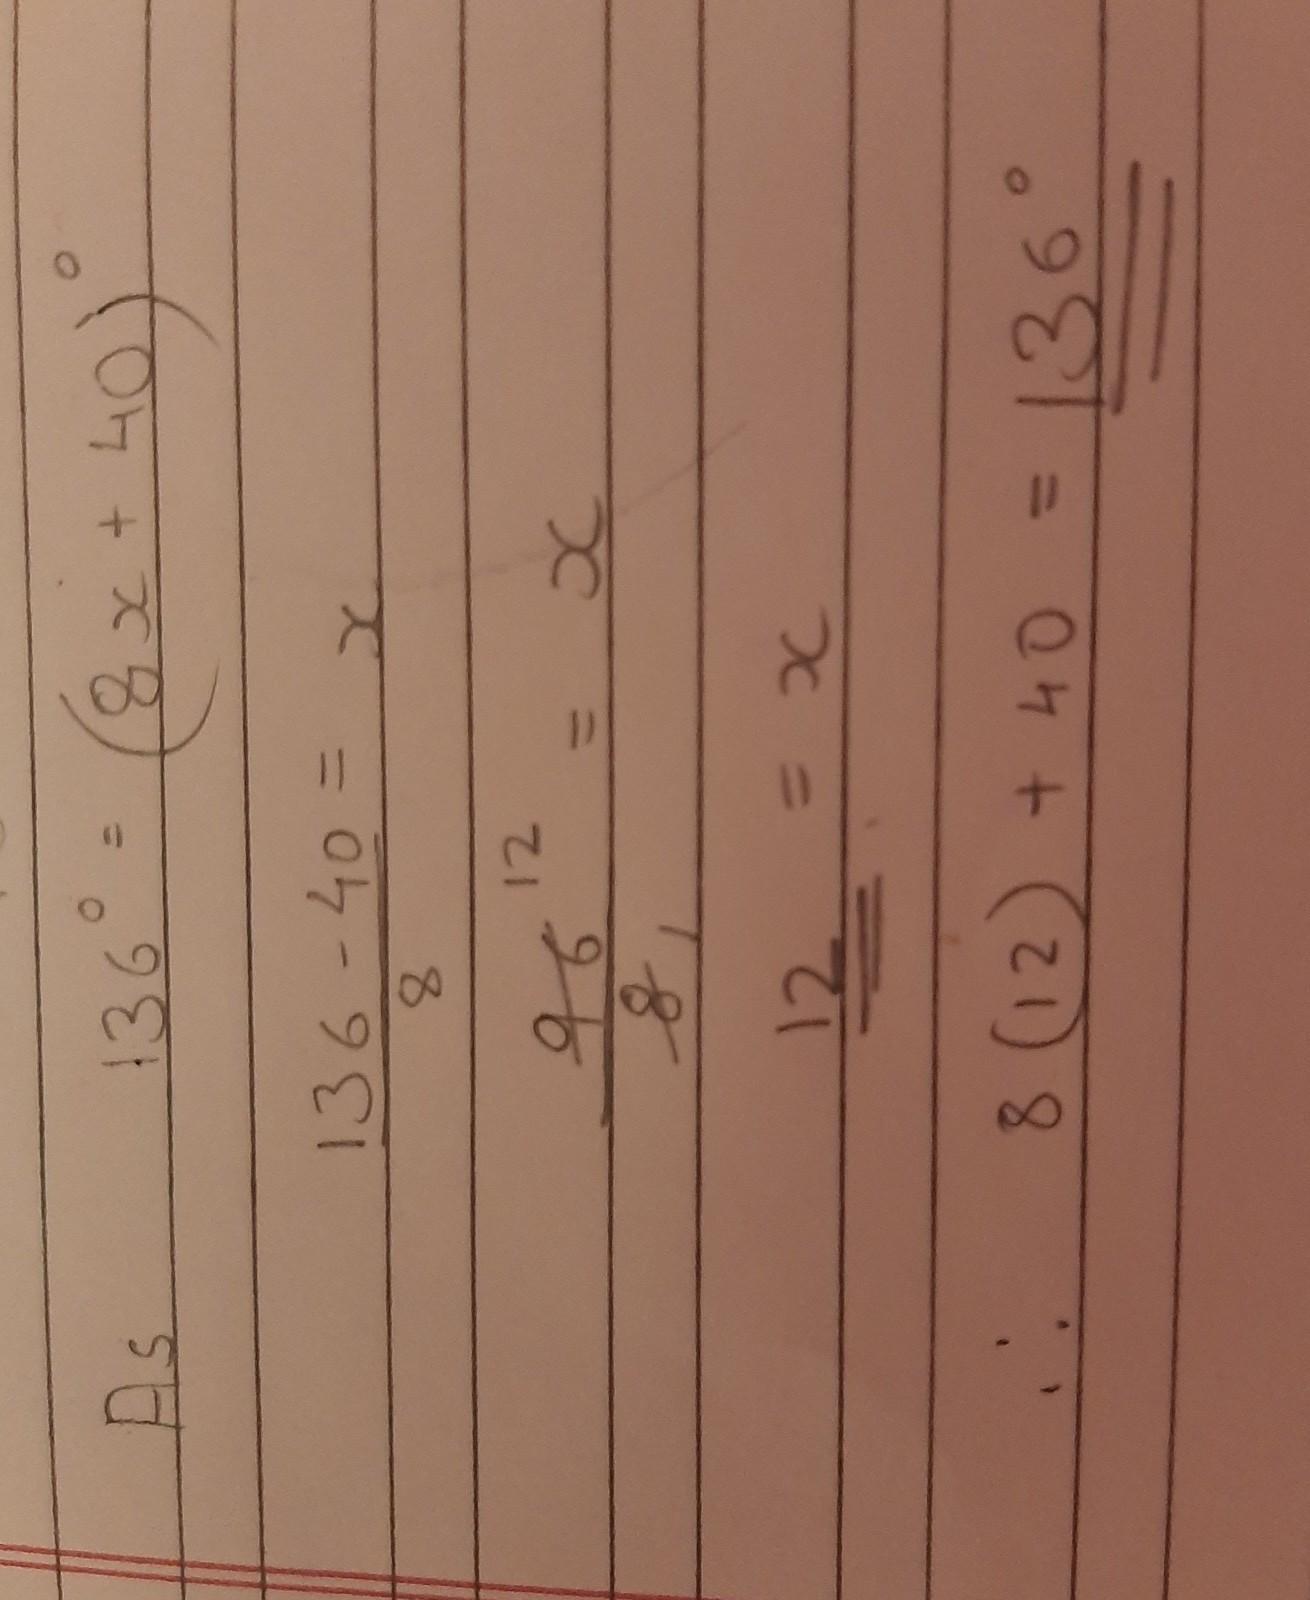 As 136° = (8x + 40)°
136 - 40 = x
8
96 12 = x
8 1
12 = x
∴ 8(12) + 40 = 136°